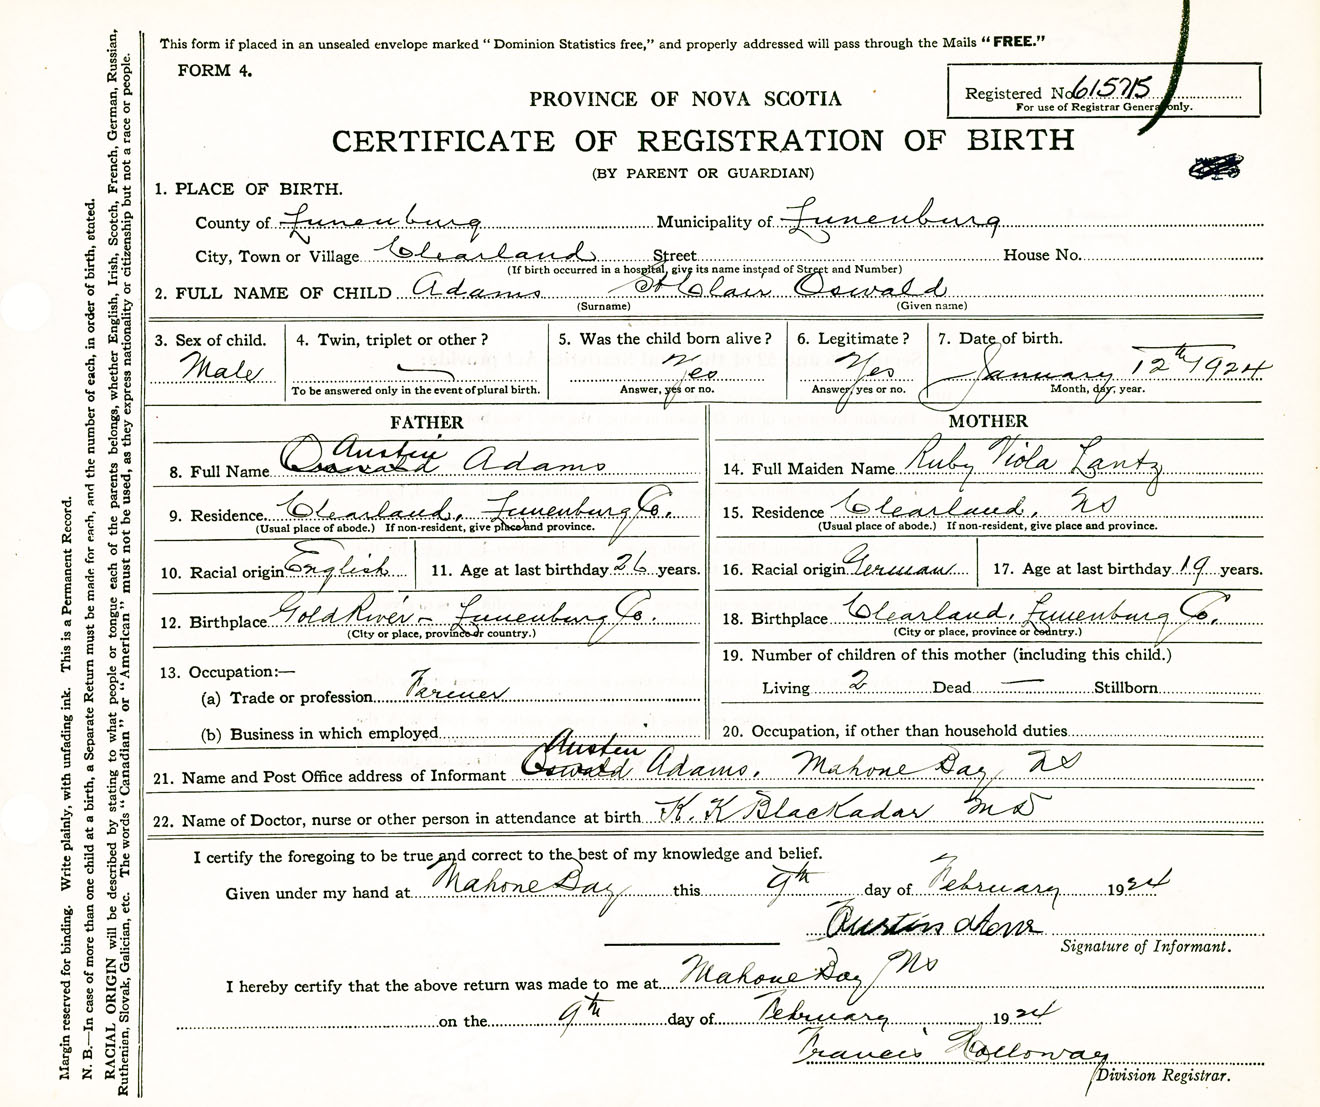 This form if placed in an unsealed envelope marked "Dominion Statistics free," and properly addressed will pass through the Mails "FREE."
FORM 4.
Registered No. 615715
For use of Registrar General only.
PROVINCE OF NOVA SCOTIA
CERTIFICATE OF REGISTRATION OF BIRTH
(BY PARENT OR GUARDIAN)
1. PLACE OF BIRTH.
County of Lunenburg Municipality of Lunenburg
City, Town or Village Clearland Street House No.
(If birth occurred in a hospital, give its name instead of Street and Number)
2. FULL NAME OF CHILD Adams St Clair Oswald
(Surname) (Given name)
3. Sex of child. 4. Twin, triplet or other? 5. Was the child born alive? 6. Legitimate? 7. Date of birth.
Male — Yes Yes January 12th 1924
To be answered only in the event of plural birth. Answer, yes or no. Answer, yes or no. Month, day, year.
FATHER
Austin
8. Full Name Oswald Adams
9. Residence. Clearland, Lunenburg Co.
(Usual place of abode.) If non-resident, give place and province.
10. Racial origin English 11. Age at last birthday 26 years.
12. Birthplace Gold River - Lunenburg Co.
(City or place, province or country.)
13. Occupation:—
(a) Trade or profession Farmer
(b) Business in which employed
MOTHER
14. Full Maiden Name Ruby Viola Lantz
15. Residence Clearland, NS
(Usual place of abode.) If non-resident, give place and province.
16. Racial origin German 17. Age at last birthday 19 years.
18. Birthplace Clearland, Lunenburg Co.
(City or place, province or country.)
19. Number of children of this mother (including this child.)
Living 2 Dead — Stillborn
20. Occupation, if other than household duties
Austin
21. Name and Post Office address of Informant Oswald Adams, Mahone Bay, NS
22. Name of Doctor, nurse or other person in attendance at birth K. K Blackadar MD
I certify the foregoing to be true and correct to the best of my knowledge and belief.
Given under my hand at Mahone Bay this 9th day of February 1924
Austin
Signature of Informant.
I hereby certify that the above return was made to me at Mahone Bay NS
on the 9th day of February 1924
Francis Holloway
Division Registrar.
Margin reserved for binding. Write plainly, with unfading ink. This is a Permanent Record.
N. B.—In case of more than one child at a birth, a Separate Return must be made for each, and the number of each, in order of birth, stated.
RACIAL ORIGIN will be described by stating to what people or tongue each of the parents belongs, whether English, Irish, Scotch, French, German, Russian,
Ruthenian, Slovak, Galician, etc. The words "Canadian" or "American" must not be used, as they express nationality or citizenship but not a race or people.